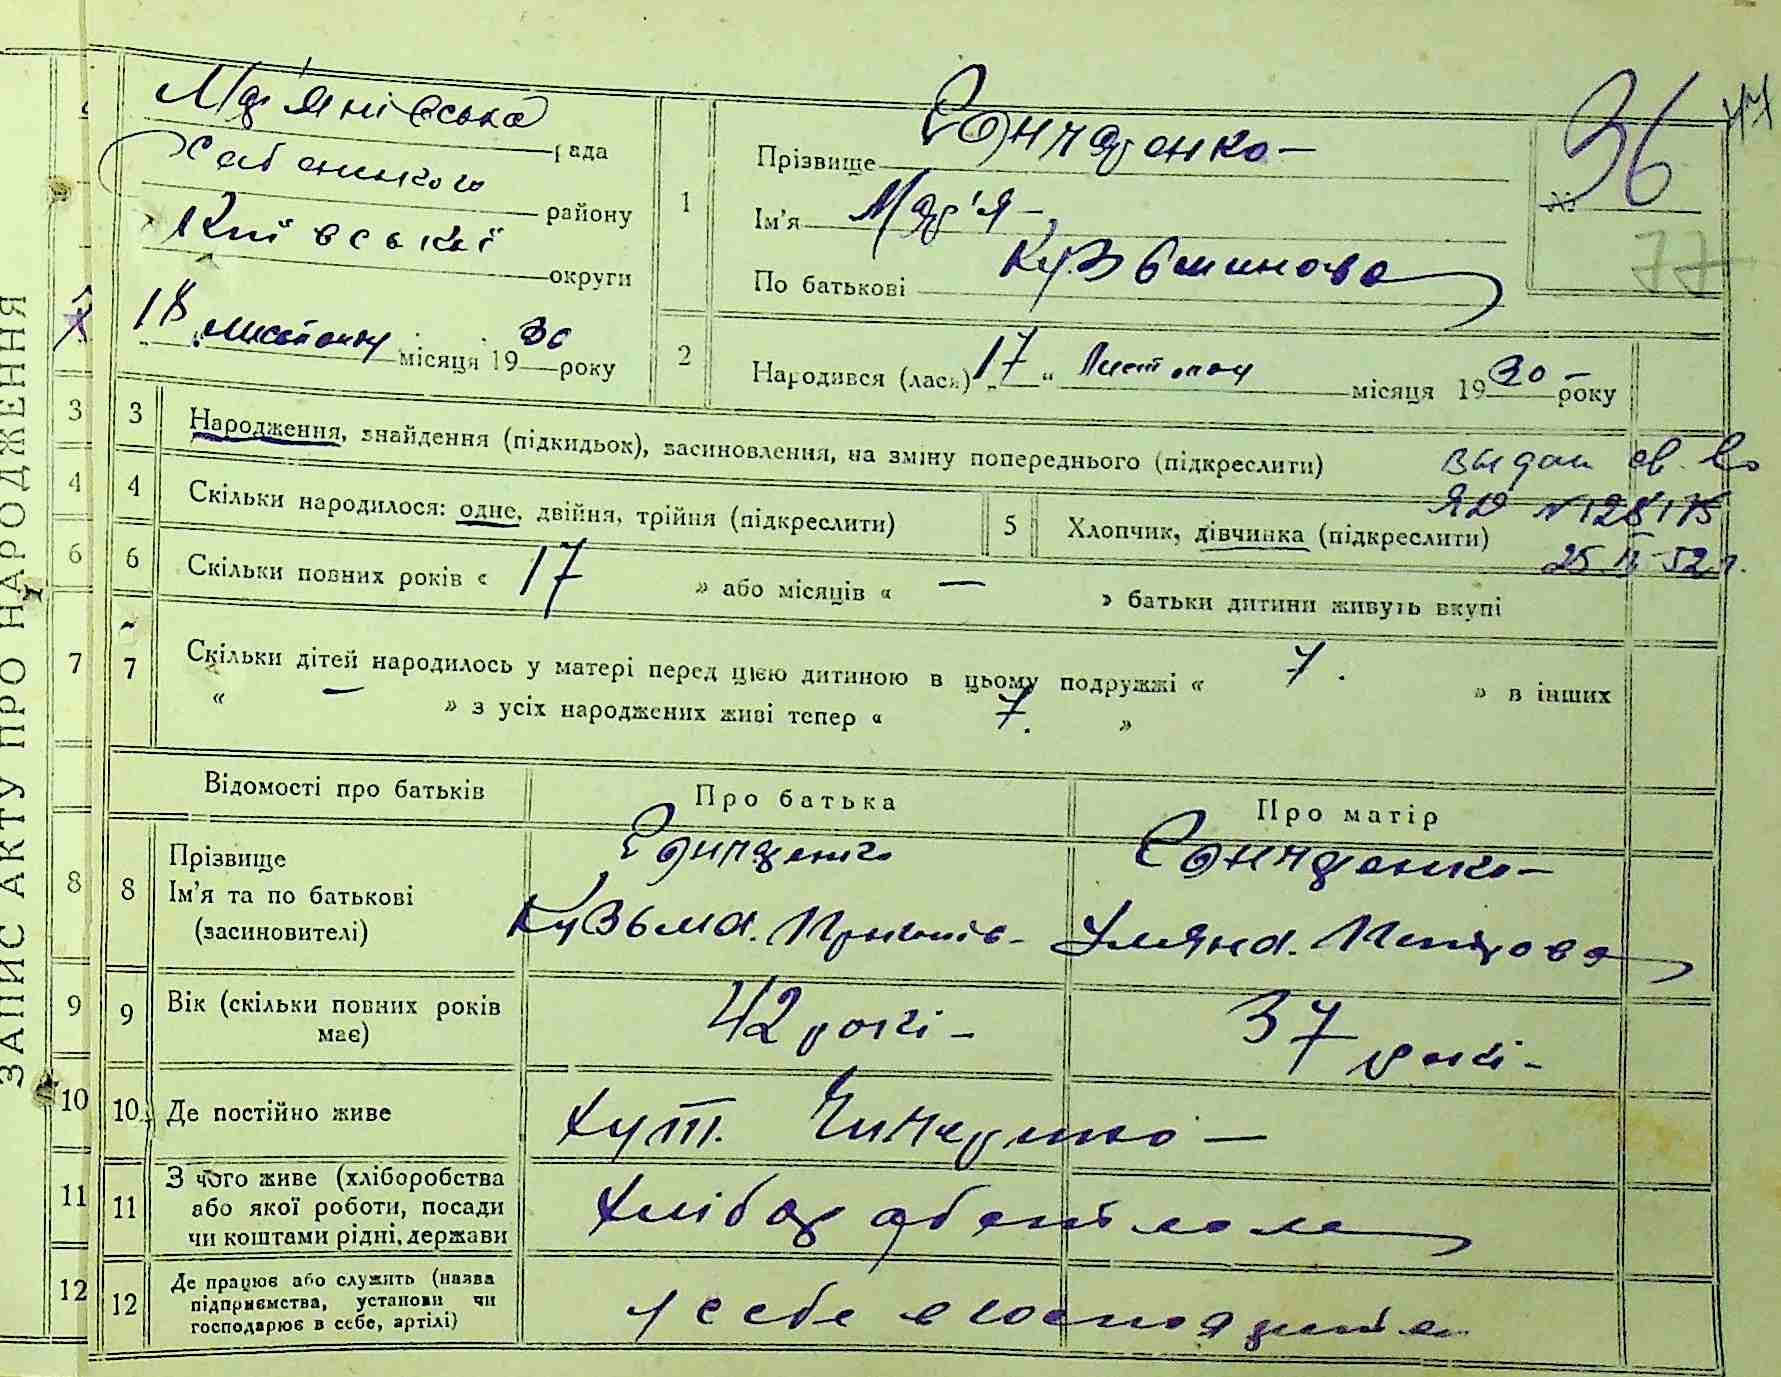 ЗАПИС АКТУ ПРО НАРОДЖЕННЯ
Мар'янівська
рада
Хабенського
району
Київської
округи
18 „листопаду місяця 1930 року
1
Прізвище Гончаренко-
Ім'я Мар'я-
По батькові Кузьминова
№ 36
77
2
Народився (лася) „17“ Листопаду місяця 1930- року
3
Народження, знайдення (підкидьок), засиновлення, на зміну попереднього (підкреслити)
выдан св. во
ЯЮ №128175
25.II-52 г.
4
Скільки народилося: одне, двійня, трійня (підкреслити)
5
Хлопчик, дівчинка (підкреслити)
6
Скільки повних років « 17 » або місяців « — » батьки дитини живуть вкупі
7
Скільки дітей народилось у матері перед цією дитиною в цьому подружжі « 7. » в інших
« — » з усіх народжених живі тепер « 7. »
Відомості про батьків
Про батька
Про матір
8
Прізвище
Ім'я та по батькові
(засиновителі)
Гончаренко
Кузьма.
Гончаренко-
Уляна.
9
Вік (скільки повних років
має)
42 рокі-
37 рокі-
10
Де постійно живе
хут.
11
З чого живе (хліборобства
або якої роботи, посади
чи коштами рідні, держави
12
Де працює або служить (назва
підприємства, установи чи
господарює в себе, артілі)
у себе в
3
4
6
7
8
9
10
11
12